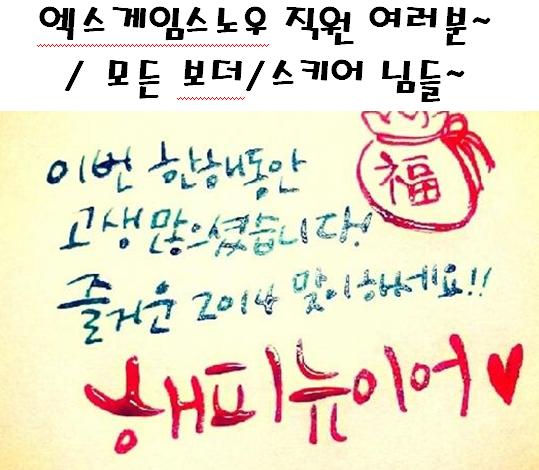 엑스게임스노우 직원 여러분~
/ 모든 보더/스키어 님들~
福
이번 한해동안
고생많으셨습니다!
즐거운 2014 맞이하세요!!
해피뉴이어♥